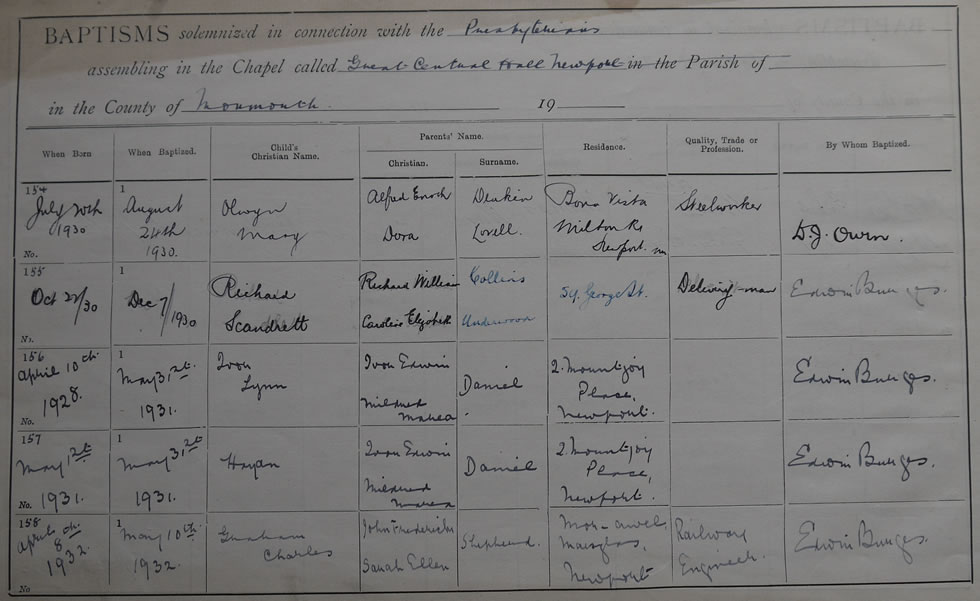 BAPTISMS solemnized in connection with the Presbyterians
assembling in the Chapel called Great Central Hall Newport in the Parish of
in the County of Monmouth 19
When Born When Baptized. Child's Christian Name. Parents' Name. Christian. Surname. Residence. Quality, Trade or Profession. By Whom Baptized.
154 1
July 20th August Olwyn Alfred Enoch Bona Vista Steelworker
1930 24th Mary Dora Lovell Milton Rd D.J. Owen.
No. 1930. Newport
155 1
Oct 22/30 Dec 7/1930 Richard Richard William Collins 59. George St. Edwin Burges.
Scandrett Caroline Elizabeth Underwood
No.
156 1
April 10th May 31st Ivor Ivor Edwin Daniel 2. Mountjoy Edwin Burges.
1928. 1931. Lynn Mildred Place,
No. Newport.
157 1
May 1st May 31st Ivor Edwin Daniel 2. Mountjoy Edwin Burges.
1931. 1931. Mildred Place,
No. Newport.
158 1
April 8th May 10th Graham John Frederick Shepherd. Railway Edwin Burges.
1932. 1932. Charles Sarah Ellen Maesglas, Engineer.
No Newport